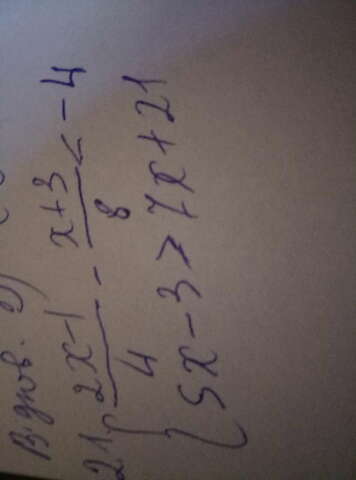 Віднов.
21) { (2x-1)/4 - (x+3)/8 < -4
5x-3>7x+21